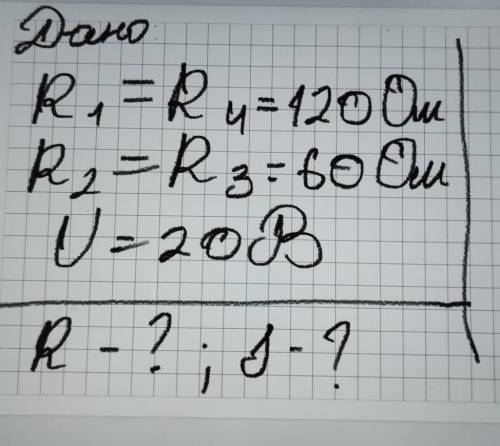 Дано
R₁ = R₄ = 120 Ом
R₂ = R₃ = 60 Ом
U = 20 В
R - ? ; I - ?